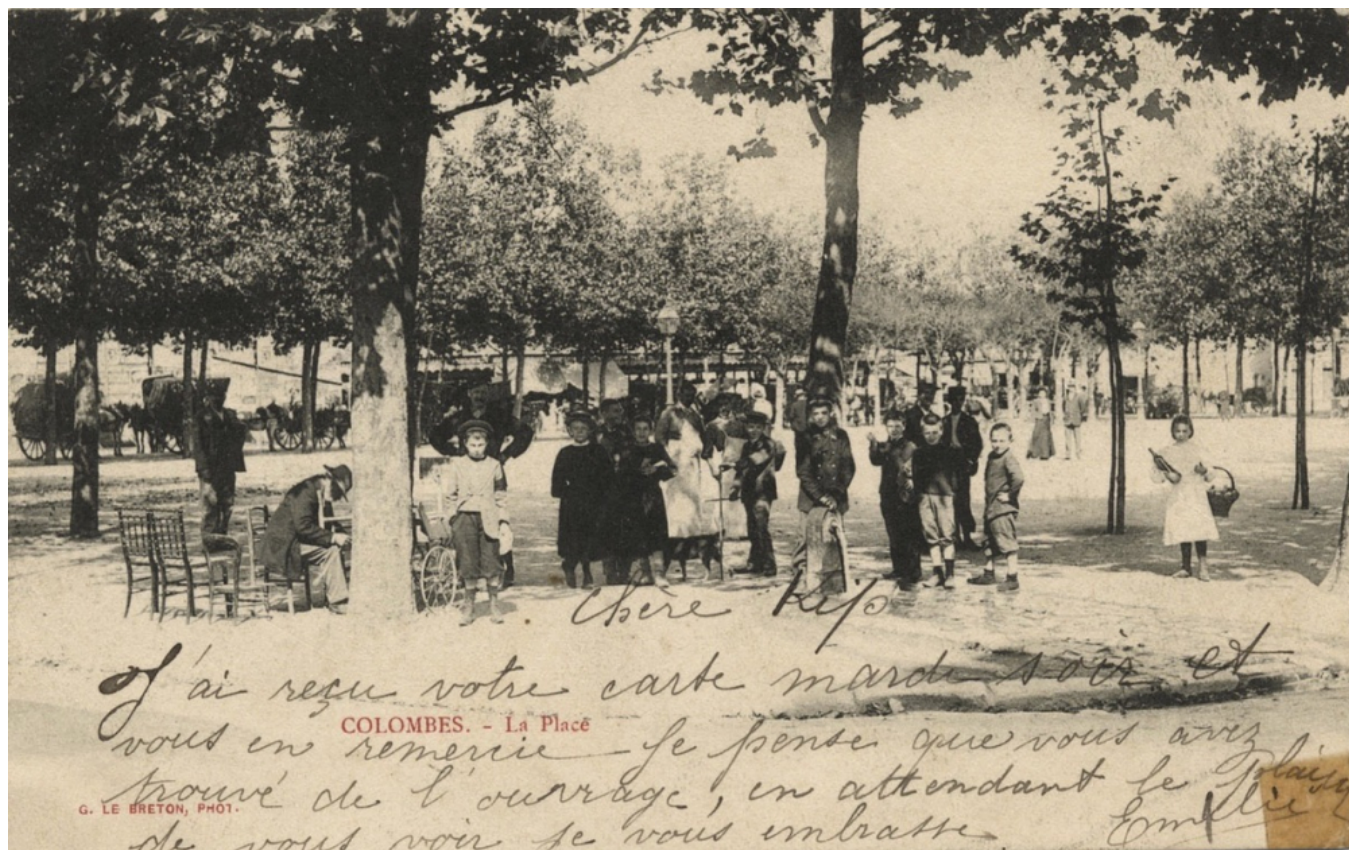 Chère Kip
J'ai reçu votre carte mardi soir et
COLOMBES. - La Place
vous en remercie je pense que vous avez
trouvé de l'ouvrage, en attendant le plaisir
G. LE BRETON, PHOT.
de vous voir je vous embrasse Emilie